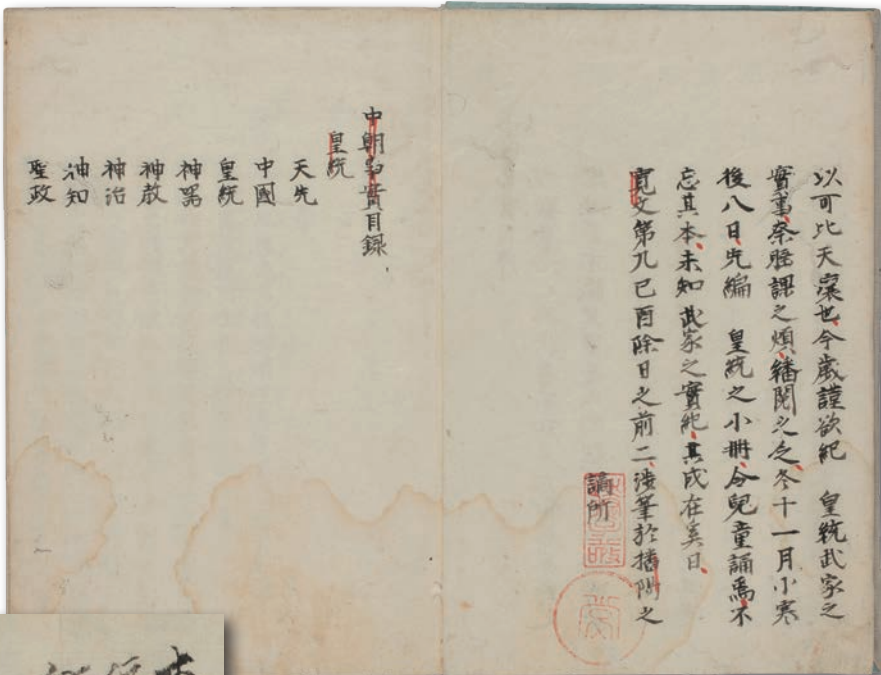 以可比天壤也、今歲謹欲紀　皇統武家之
實事、奈睡課之煩、繙閱之乏、冬十一月小寒
後八日、先編　皇統之小冊、令兒童誦焉、不
忘其本、未知武家之實紀、其成在奚日、
寬文第九己酉除日之前二、涉筆於播陽之
謫所
中朝叓實目録
皇統
天先
中國
皇統
神器
神教
神治
神知
聖政